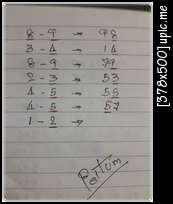 8 - 9 → 98
3 - 4 → 14
8 - 9 → 79
2 - 3 → 53
4 - 5 → 55
4 - 5 → 57
1 - 2 →
[378x500] uplc.me